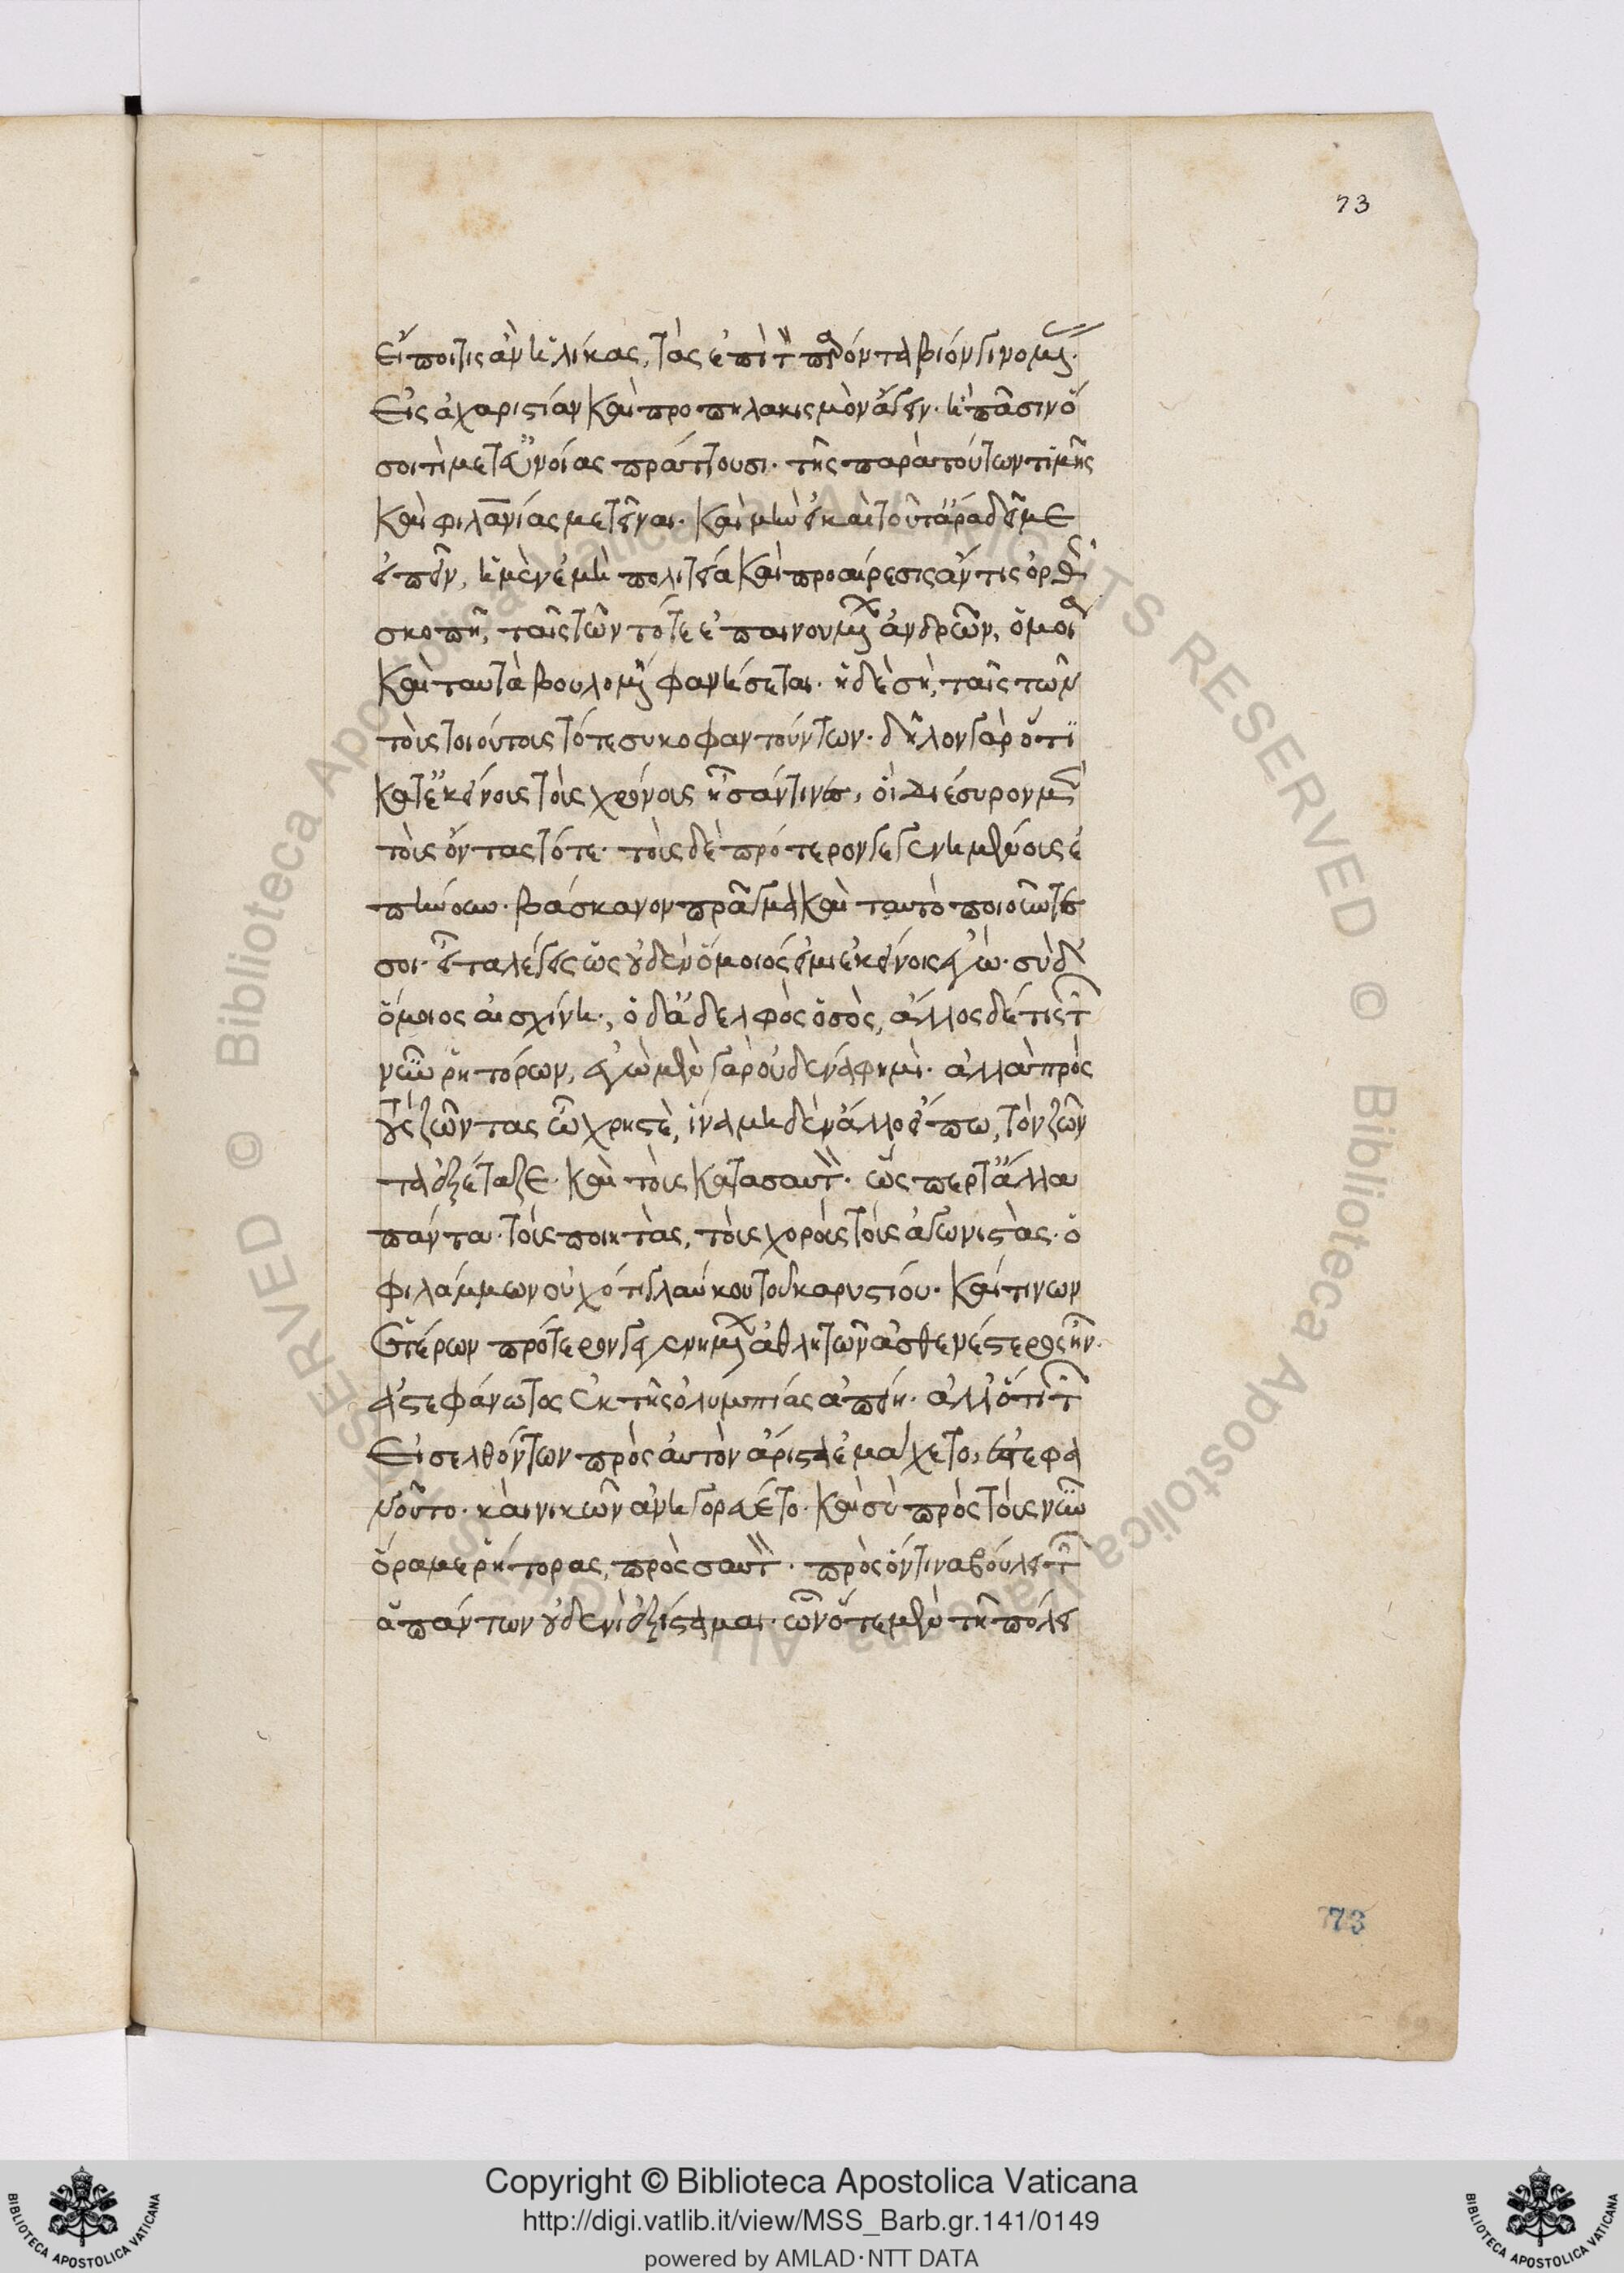 73
εἴποι τις ἂν ἡλίκας, τὰς ἐπὶ τὸν παρόντα βίον γινομένας
εἰς ἀχαριστίαν καὶ προπηλακισμὸν ἄγειν. ἢ πᾶσιν ὅ
σοι τὶ μετ' εὐνοίας πράττουσι. τῆς παρὰ τούτων τιμῆς
καὶ φιλανθρωπίας μετεῖναι. καὶ μὴν εἰ καὶ τοῦτ' ἄρα δεῖ με
εἰπεῖν, ἡ μὲν ἐμὴ πολιτεία καὶ προαίρεσις ἄν τις ὀρθῶς
σκοπῇ, ταῖς τῶν τότε ἐπαινουμένων ἀνδρῶν, ὁμοία
καὶ ταυτὰ βουλομένη φανήσεται. ἡ δὲ σὴ, ταῖς τῶν
τοὺς τοιούτους τότε συκοφαντούντων. δῆλον γὰρ ὅτι
κατ' ἐκείνους τοὺς χρόνους ἦσάν τινες, οἳ διέσυρον μὲν
τοὺς ὄντας τότε. τοὺς δὲ πρότερον γεγενημένους ἐ
πῄνουν. βάσκανον πρᾶγμα καὶ ταυτὸ ποιοῦντες
σοι. εἶτα λέγεις ὡς οὐδὲν ὅμοιός εἰμι ἐκείνοις ἐγώ. σὺ δ'
ὅμοιος αἰσχίνη., ὁ δ' ἀδελφὸς ὁ σὸς, ἄλλος δέ τις τῶν
νῦν ῥητόρων, ἐγὼ μὲν γὰρ οὐδένα φημὶ. ἀλλὰ πρὸς
τοὺς ζῶντας ὦ χρηστὲ, ἵνα μηδὲν ἄλλο εἴπω, τὸν ζῶν
τα ἐξέταζε. καὶ τοὺς κατὰ σαυτὸν. ὥσπερ τἄλλα
πάντα. τοὺς ποιητὰς, τοὺς χοροὺς τοὺς ἀγωνιστὰς. ὁ
φιλάμμων οὐχ ὅτι γλαύκου τοῦ καρυστίου. καί τινων
ἑτέρων πρότερον γεγενημένων ἀθλητῶν ἀσθενέστερος ἦν.
ἀστεφάνωτος ἐκ τῆς ὀλυμπίας ἀπῄει. ἀλλ' ὅτι τῶν
εἰσελθόντων πρὸς αὐτὸν ἄριστα ἐμάχετο, ἐστεφα
νοῦτο. καὶ νικῶν ἀνηγορεύετο. καὶ σὺ πρὸς τοὺς νῦν
ὅρα με ῥήτορας, πρὸς σαυτὸν. πρὸς ὅντινα βούλει τῶν
ἁπάντων οὐδενὶ ἐξίσταμαι. ὧν ὅτε μὲν τῇ πόλει
73
Copyright © Biblioteca Apostolica Vaticana
http://digi.vatlib.it/view/MSS_Barb.gr.141/0149
powered by AMLAD·NTT DATA
BIBLIOTECA APOSTOLICA VATICANA
BIBLIOTECA APOSTOLICA VATICANA
© Biblioteca Apostolica Vaticana ALL RIGHTS RESERVED © Biblioteca Apostolica Vaticana ALL RIGHTS RESERVED